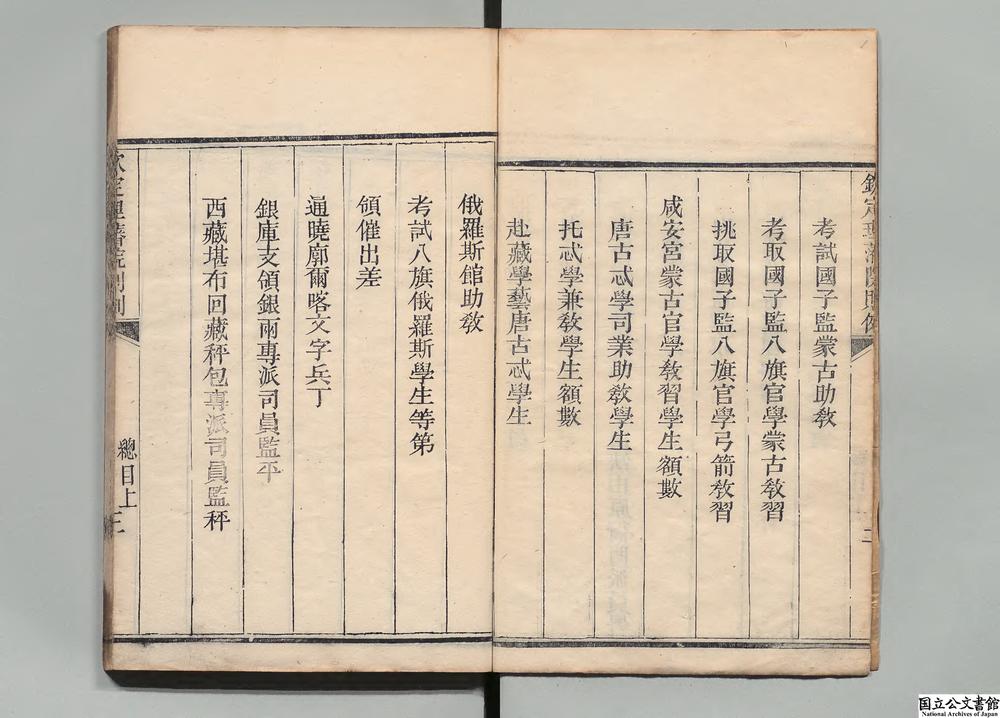 欽定理藩院則例
二
考試國子監蒙古助教
考取國子監八旗官學蒙古教習
挑取國子監八旗官學弓箭教習
咸安宮蒙古官學教習學生額數
唐古忒學司業助教學生
托忒學兼教學生額數
赴藏學藝唐古忒學生
俄羅斯館助教
考試八旗俄羅斯學生等第
領催出差
通曉廓爾喀文字兵丁
銀庫支領銀兩專派司員監平
西藏堪布回藏秤包專派司員監秤
欽定理藩院則例
總目上
三
国立公文書館
National Archives of Japan